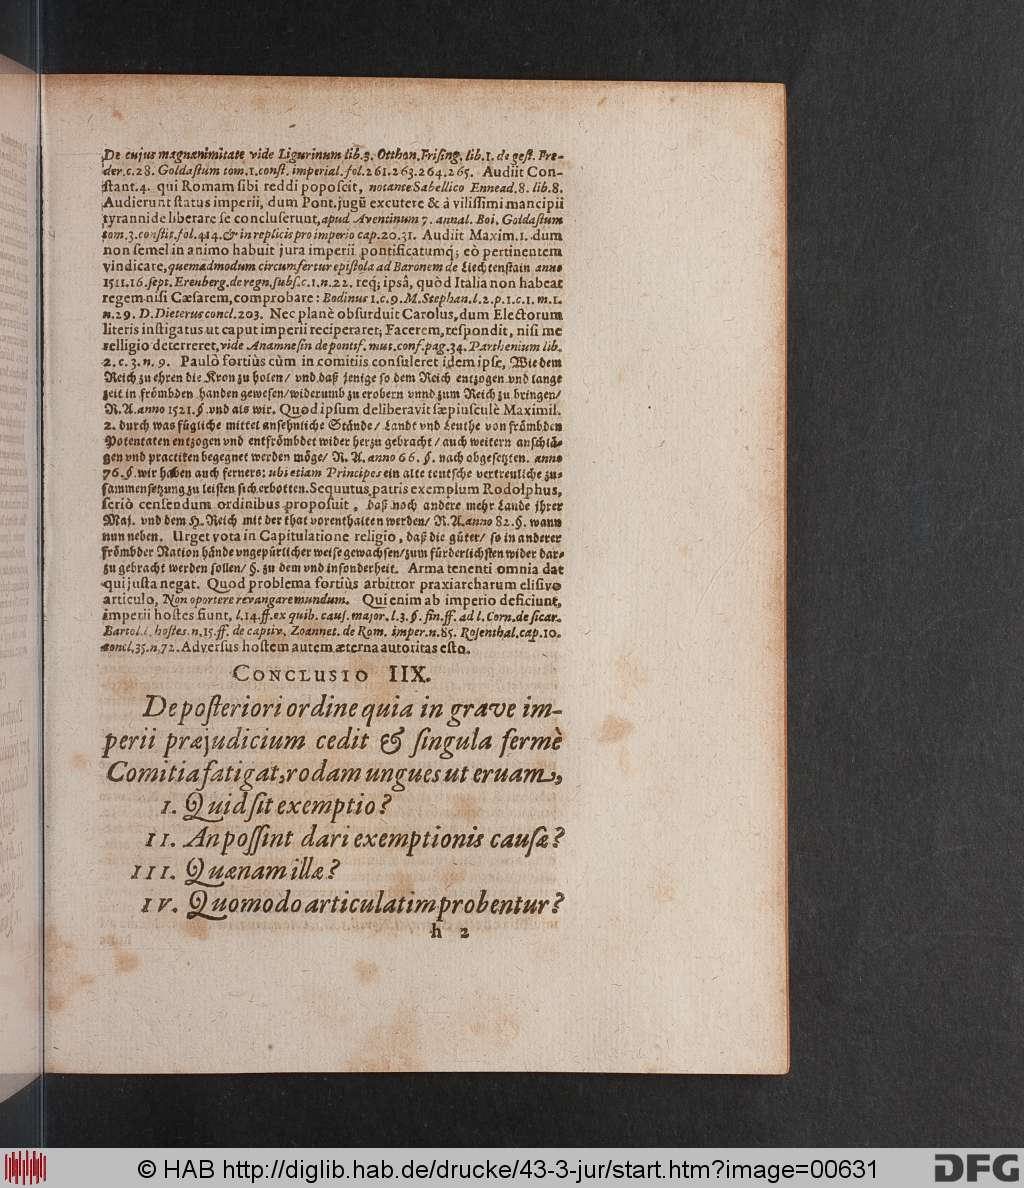 De cujus magnanimitate vide Ligurinum lib.3. Otthon.Frising. lib.1. de gest. Fre-
der.c.28. Goldastum tom.1.const. imperial.fol.261.263.264.265. Audiit Con-
stant.4. qui Romam sibi reddi poposcit, notante Sabellico Ennead.8. lib.8.
Audierunt status imperii, dum Pont.jugũ excutere & à vilissimi mancipii
tyrannide liberare se concluserunt, apud Aventinum 7. annal. Boi. Goldastum
tom.3.constit.fol.414.& in replicis pro imperio cap.20.31. Audiit Maxim.1. dum
non semel in animo habuit jura imperii pontificatumq; eò pertinentem
vindicare, quemadmodum circumfertur epistola ad Baronem de Liechtenstain anno
1511.16.sept. Erenberg.de regn.subs.c.1.n.22. req; ipsâ, quòd Italia non habeat
regem nisi Cæsarem, comprobare: Bodinus 1.c.9. M.Stephan.l.2.p.1.c.1.m.1.
n.29. D.Dieterus concl.203. Nec planè obsurduit Carolus, dum Electorum
literis instigatus ut caput imperii reciperaret; Facerem, respondit, nisi me
relligio deterreret, vide Anamnesin de pontif. mut.conf.pag.34. Parthenium lib.
2. c. 3. n. 9. Paulò fortiùs cùm in comitiis consuleret idem ipse, Wie dem
Reich zu ehren die Kron zu holen/ vnd daß jenige so dem Reich entzogen vnd lange
zeit in frömbden handen gewesen/widerumb zu erobern vnnd zum Reich zu bringen/
R.A.anno 1521.§.vnd als wir. Quod ipsum deliberavit sæpiusculè Maximil.
2. durch was fügliche mittel ansehnliche Stände/ Landt vnd Leuthe von frömbden
Potentaten entzogen vnd entfrömbdet wider herzu gebracht/ auch weitern anschlä-
gen vnd practiken begegnet werden möge/ R. A. anno 66. §. nach obgesetzten. anno
76.§.wir haben auch ferners: ubi etiam Principes ein alte teutsche vertreuliche zu-
sammensetzung zu leisten sich erbotten. Sequutus patris exemplum Rodolphus,
seriò censendum ordinibus proposuit, daß noch andere mehr Lande jhrer
Maj. vnd dem H. Reich mit der that vorenthalten werden/ R.A.anno 82.§. wann
nun neben. Urget vota in Capitulatione religio, daß die güter/ so in anderer
frömbder Nation hände vngepürlicher weise gewachsen/zum fürderlichsten wider dar-
zu gebracht werden sollen/ §. zu dem vnd insonderheit. Arma tenenti omnia dat
qui justa negat. Quod problema fortiùs arbitror praxiarcharum elisivo
articulo, Non oportere revangare mundum. Qui enim ab imperio deficiunt,
imperii hostes fiunt, l.14.ff.ex quib. caus. major. l.3.§. fin.ff. ad l. Corn.de sicar.
Bartol.l. hostes.n.15.ff. de captiv. Zoannet. de Rom. imper.n.85. Rosenthal.cap.10.
concl.35.n.72. Adversus hostem autem æterna autoritas esto.
CONCLUSIO IIX.
De posteriori ordine quia in grave im-
perii præjudicium cedit & singula fermè
Comitia fatigat, rodam ungues ut eruam,
I. Quid sit exemptio?
II. An possint dari exemptionis causæ?
III. Quænam illæ?
IV. Quomodo articulatim probentur?
h 2
© HAB http://diglib.hab.de/drucke/43-3-jur/start.htm?image=00631
DFG